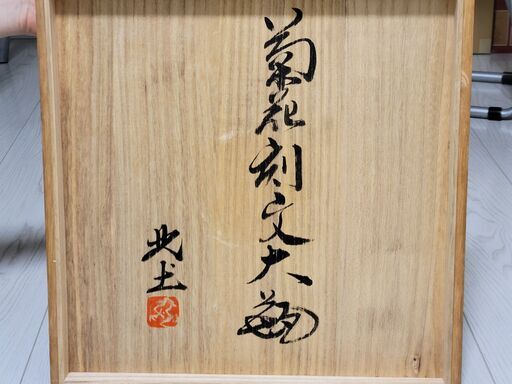 菊花刻文大
北土